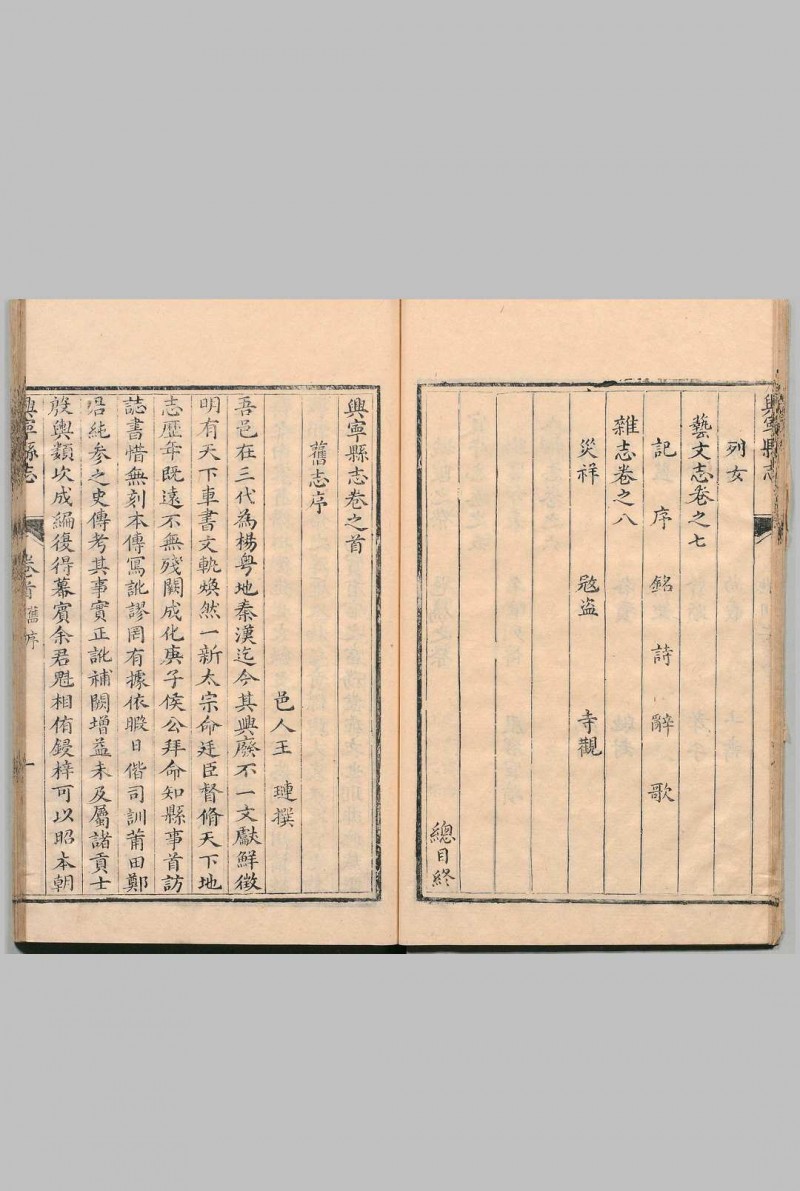 興寧縣志
列女
藝文志卷之七
記 序 銘 詩 辭 歌
雜志卷之八
災祥 寇盜 寺觀
總目終
興寧縣志卷之首
舊志序
邑人王 璉撰
吾邑在三代為楊粤地秦漢迄今其興廢不一文獻鮮徵
明有天下車書文軌煥然一新太宗命廷臣督脩天下地
志歷年既遠不無殘闕成化庚子侯公拜命知縣事首訪
誌書惜無刻本傳寫訛謬罔有據依暇日偕司訓莆田鄭
君純參之史傳考其事實正訛補闕增益未及屬諸貢士
殷輿類次成編復得幕賓余君魁相侑鋟梓可以昭本朝
興寧縣志 卷首 舊序 一